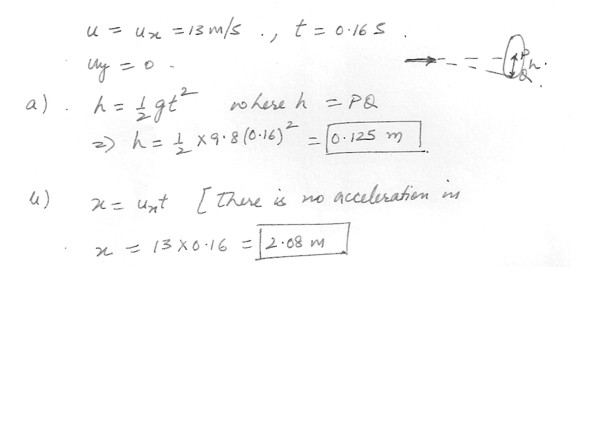 u = ux = 13 m/s ., t = 0.16 s .
uy = 0 .
P
h.
Q
a) . h = 1/2 gt² where h = PQ
=> h = 1/2 × 9.8 (0.16)² = 0.125 m
u) x = uxt [ There is no acceleration in
x = 13 × 0.16 = 2.08 m